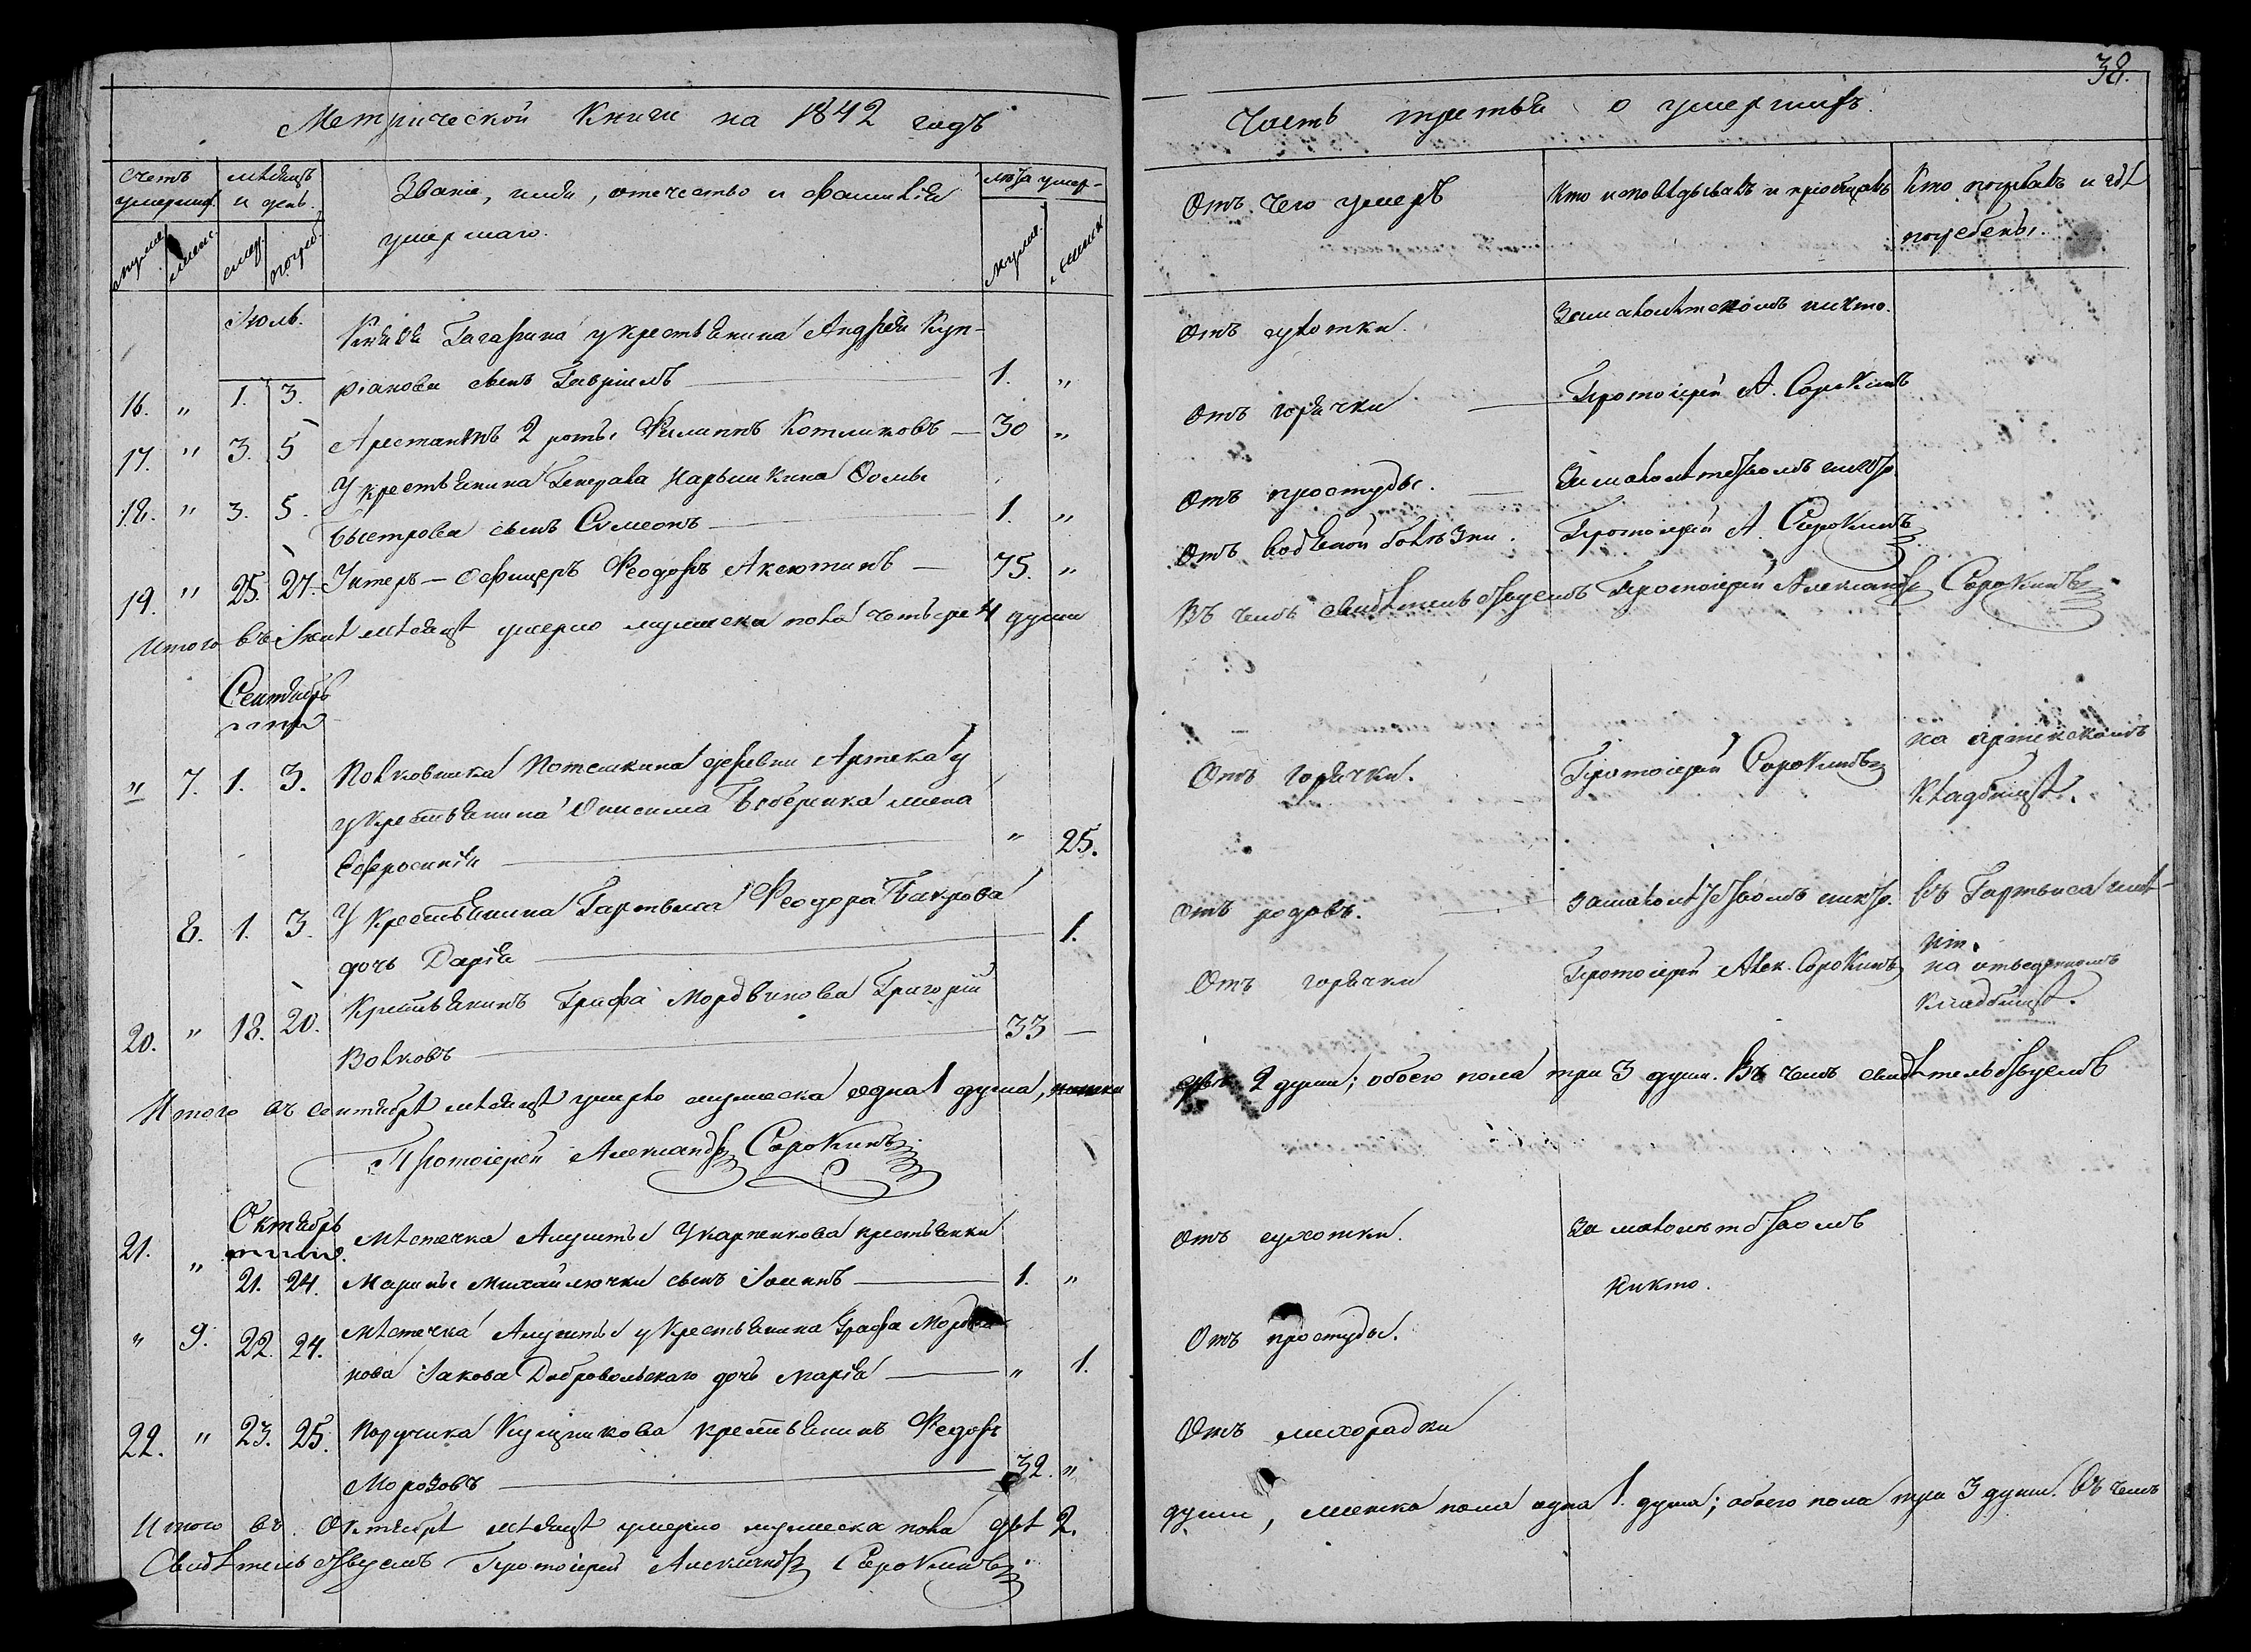 38.
Метрической Книги на 1842 годъ
Счетъ умершихъ
мѣсяцъ и день.
Званіе, имя, отечество и фамилія
умершаго.
лѣта умер-
муже. женс. смер. погреб. муже. женск
Іюль.
Князя Гагарина у крестьянина Андрея Куп-
16. " 1. 3. ріанова сынъ Гавріилъ — 1. "
17. " 3. 5 Арестантъ 2 роты Филиппъ Котликовъ — 30 "
У крестьянина Генерала Нарышкина Ѳомы
18. " 3. 5. Быстрова сынъ Симеонъ — 1. "
19. " 25. 27. Унтеръ-Офицеръ Феодоръ Аксютинъ — 75. "
Итого въ Іюлѣ мѣсяцѣ умерло мужеска пола четыре 4 души
Сентябрь
" 7. 1. 3. Полковника Потемкина деревни Артека у
у крестьянина Онисима женa
Ефросинія — " 25.
8. 1. 3. У крестьянина Гартвиса Феодора
дочь Дарія — 1.
20. " 18. 20. Крестьянинъ Графа Мордвинова Григорій
Волковъ — 33 —
Итого въ сентябрѣ мѣсяцѣ умерло мужеска одна 1 душа, женска
Протоіерей Александръ Сорокинъ
Октябрь
21. " Мѣстечка Алушты крестьянки
21. 24. Марины Михайлючки сынъ Іоаннъ — 1. "
" 9. 22. 24. Мѣстечка Алушты у крестьянина Графа Мордви-
нова Іакова Добровольскаго дочь Марія — " 1.
22. " 23. 25. Поручика Кушникова крестьянинъ Федоръ
Морозовъ — 32. "
Итого въ Октябрѣ мѣсяцѣ умерло мужеска пола двѣ 2.
Свидѣтельствуемъ Протоіерей Александръ Сорокинъ
Часть третья о умершихъ.
Отъ чего умеръ
Кто исповѣдывалъ и пріобщалъ
Кто погребалъ и гдѣ
погребены.
Отъ сухотки. За малолѣтскомъ никто.
Отъ горячки — Протоіерей А. Сорокинъ
Отъ простуды. — За малолѣтствомъ никто.
Отъ водяной болѣзни. Протоіерей А. Сорокинъ
Въ чемъ свидѣтельствуемъ Протоіерей Александръ Сорокинъ
Отъ горячки. Протоіерей Сорокинъ на артекскомъ
кладбищѣ.
Отъ родовъ. — За малолѣтствомъ никто. въ Гартвиса имѣ-
ніи.
Отъ горячки Протоіерей Алек. Сорокинъ на отведенномъ
кладбищѣ.
двѣ 2 души; обоего пола три 3 души. Въ чемъ свидѣтельствуемъ
Отъ сухотки. За малолѣтствомъ
никто.
Отъ простуды.
Отъ лихорадки
души, женска пола одна 1. душа; обоего пола три 3 души. Въ чемъ